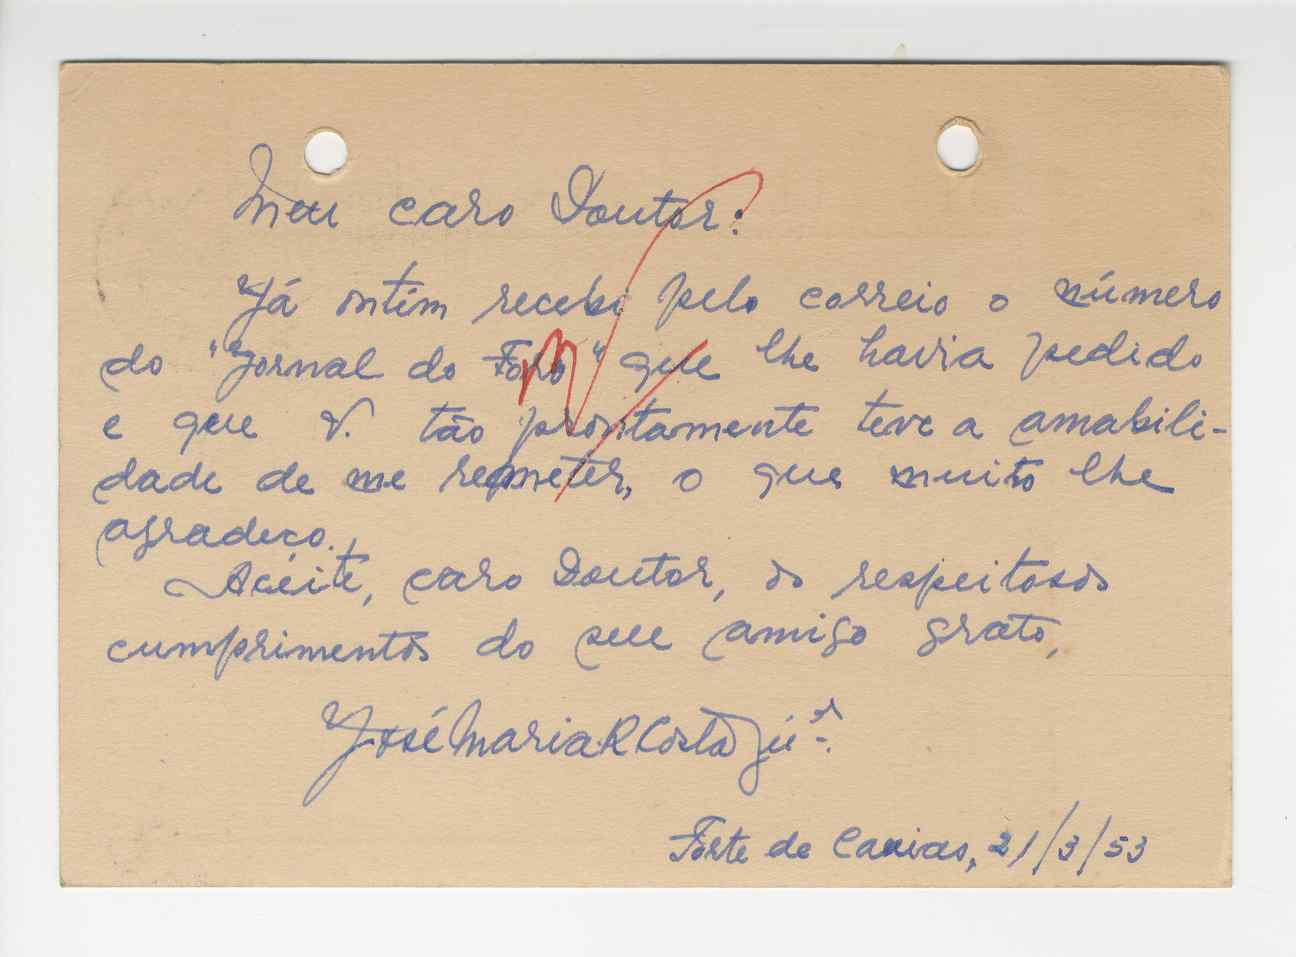 Meu caro Doutor:
Já ontem recebi pelo correio o número
do "Jornal do Foro" que lhe havia pedido
e que V. tão prontamente teve a amabili-
dade de me remeter, o que muito lhe
agradeço.
Aceite, caro Doutor, os respeitosos
cumprimentos do seu amigo grato,
José Maria R Costa Júr.
Forte de Caxias, 21/3/53